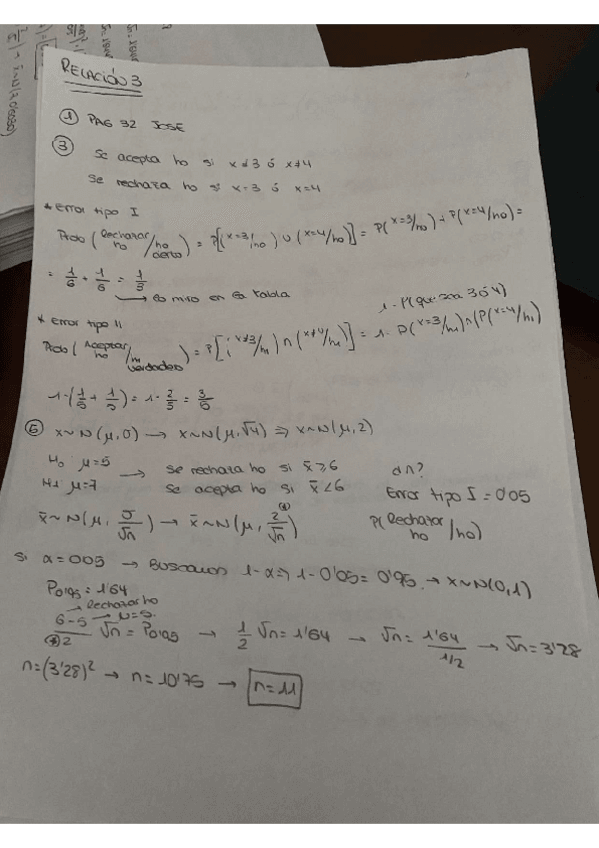 RELACIÓN 3
① PAG 32 JOSE
③ Se acepta ho si x≠3 ó x≠4
Se rechaza ho si x=3 ó x=4
* Error tipo I
Prob (Rechazar ho / ho cierto) = P[(x=3/ho) ∪ (x=4/ho)] = P(x=3/ho) + P(x=4/ho) =
= 1/6 + 1/6 = 1/3
→ lo miro en la tabla
* Error tipo II
1 - P(que sea 3 ó 4)
Prob (Aceptar ho / h1 verdadero) = P[(x≠3/h1) ∩ (x≠4/h1)] = 1 - P(x=3/h1) ∩ (P(x=4/h1)
1-(1/5 + 1/5) = 1 - 2/5 = 3/5
⑤ x~N(μ,σ) → x~N(μ,√4) ⇒ x~N(μ,2)
H0 μ=5 → Se rechaza ho si x̄≥6 dn?
H1 μ=7 Se acepta ho si x̄<6 Error tipo I = 0'05
x̄~N(μ, σ/√n) → x̄~N(μ, 2/√n) P(Rechazar ho / ho)
Si α=0'05 → Buscamos 1-α ⇒ 1-0'05 = 0'95 → x~N(0,1)
P0'95 = 1'64
→ Rechazar ho
6-5 → μ=5
/2 √n = P0'95 → 1/2 √n = 1'64 → √n = 1'64 / 1/2 → √n = 3'28
n=(3'28)² → n=10'75 → n=11